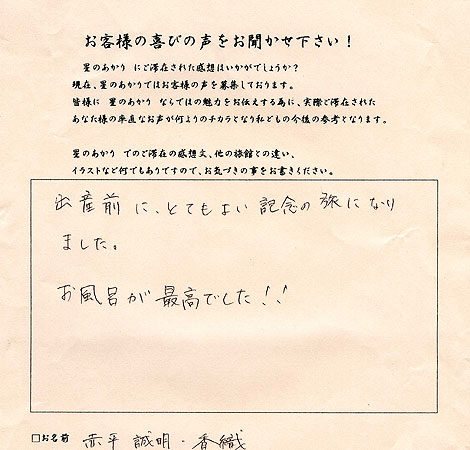 お客様の喜びの声をお聞かせ下さい！
星のあかり にご滞在された感想はいかがでしょうか？
現在、星のあかりではお客様の声を募集しております。
皆様に 星のあかり ならではの魅力をお伝えする為に、実際ご滞在された
あなた様の率直なお声が何よりのチカラとなり私どもの今後の参考となります。
星のあかり でのご滞在の感想文、他の旅館との違い、
イラストなど何でもありですので、お気づきの事をお書きください。
出産前に、とてもよい記念の旅になり
ました。
お風呂が最高でした！！
□お名前 赤平 誠明・香織